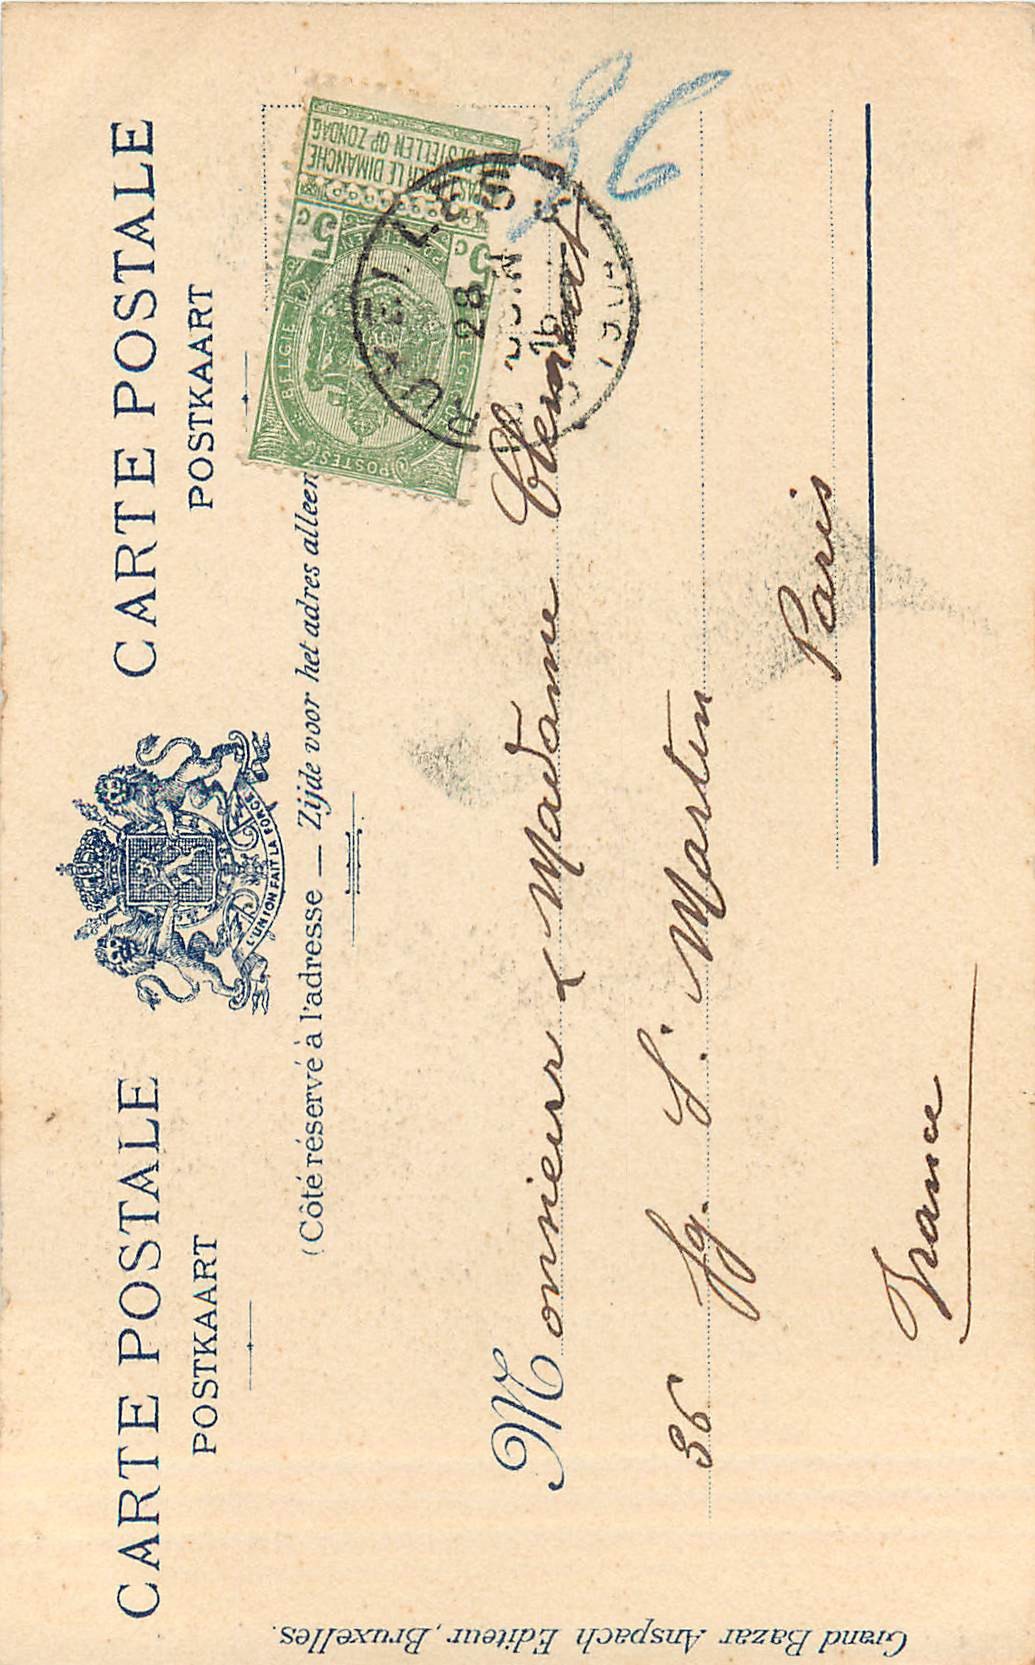 CARTE POSTALE CARTE POSTALE
POSTKAART POSTKAART
L'UNION FAIT LA FORCE
(Côté réservé à l'adresse — Zijde voor het adres alleen
NIET BESTELLEN OP ZONDAG
NE PAS LIVRER LE DIMANCHE
5c 5c
BELGIE BELGIQUE
POSTES POSTERIJEN
28
16
36
Monsieur & Madame
36 fg. St. Martin
Paris
France
Grand Bazar Anspach Editeur, Bruxelles.